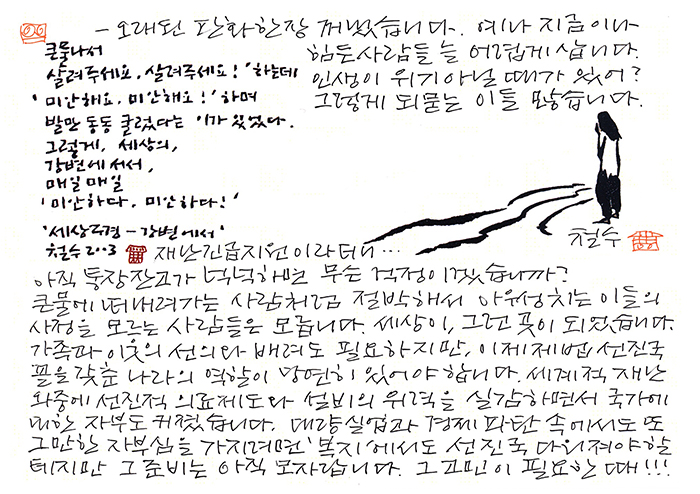 - 오래된 판화 한장 꺼냈습니다. 예나 지금이나
힘든사람들 늘 어렵게 삽니다.
인생이 위기 아닐 때가 있어?
그렇게 되묻는 이들 많습니다.
큰물 나서
살려주세요, 살려주세요!' 하는데
'미안해요, 미안해요!' 하며
발만 동동 굴렀다는 이가 있었다.
그렇게, 세상의,
강변에 서서,
매일 매일
'미안하다, 미안하다!'
'세상풍경 - 강변에서'
철수 2003
철수
재난긴급지원이라더니…
아직 통장잔고가 넉넉하면 무슨 걱정이겠습니까?
큰물에 떠내려가는 사람처럼 절박해서 아우성치는 이들의
사정을 모르는 사람들은 모릅니다. 세상이, 그런 곳이 되었습니다.
가족과 이웃의 선의와 배려도 필요하지만, 이제 제법 선진국
꼴을 갖춘 나라의 역할이 당연히 있어야 합니다. 세계적 재난
와중에 선진적 의료제도와 설비의 위력을 실감하면서 국가에
대한 자부도 커졌습니다. 대량실업과 경제 파탄 속에서도 또
그만한 자부심을 가지려면 '복지'에서도 선진국 다워져야 할
테지만 그 준비는 아직 모자랍니다. 그 고민이 필요한 때!!!